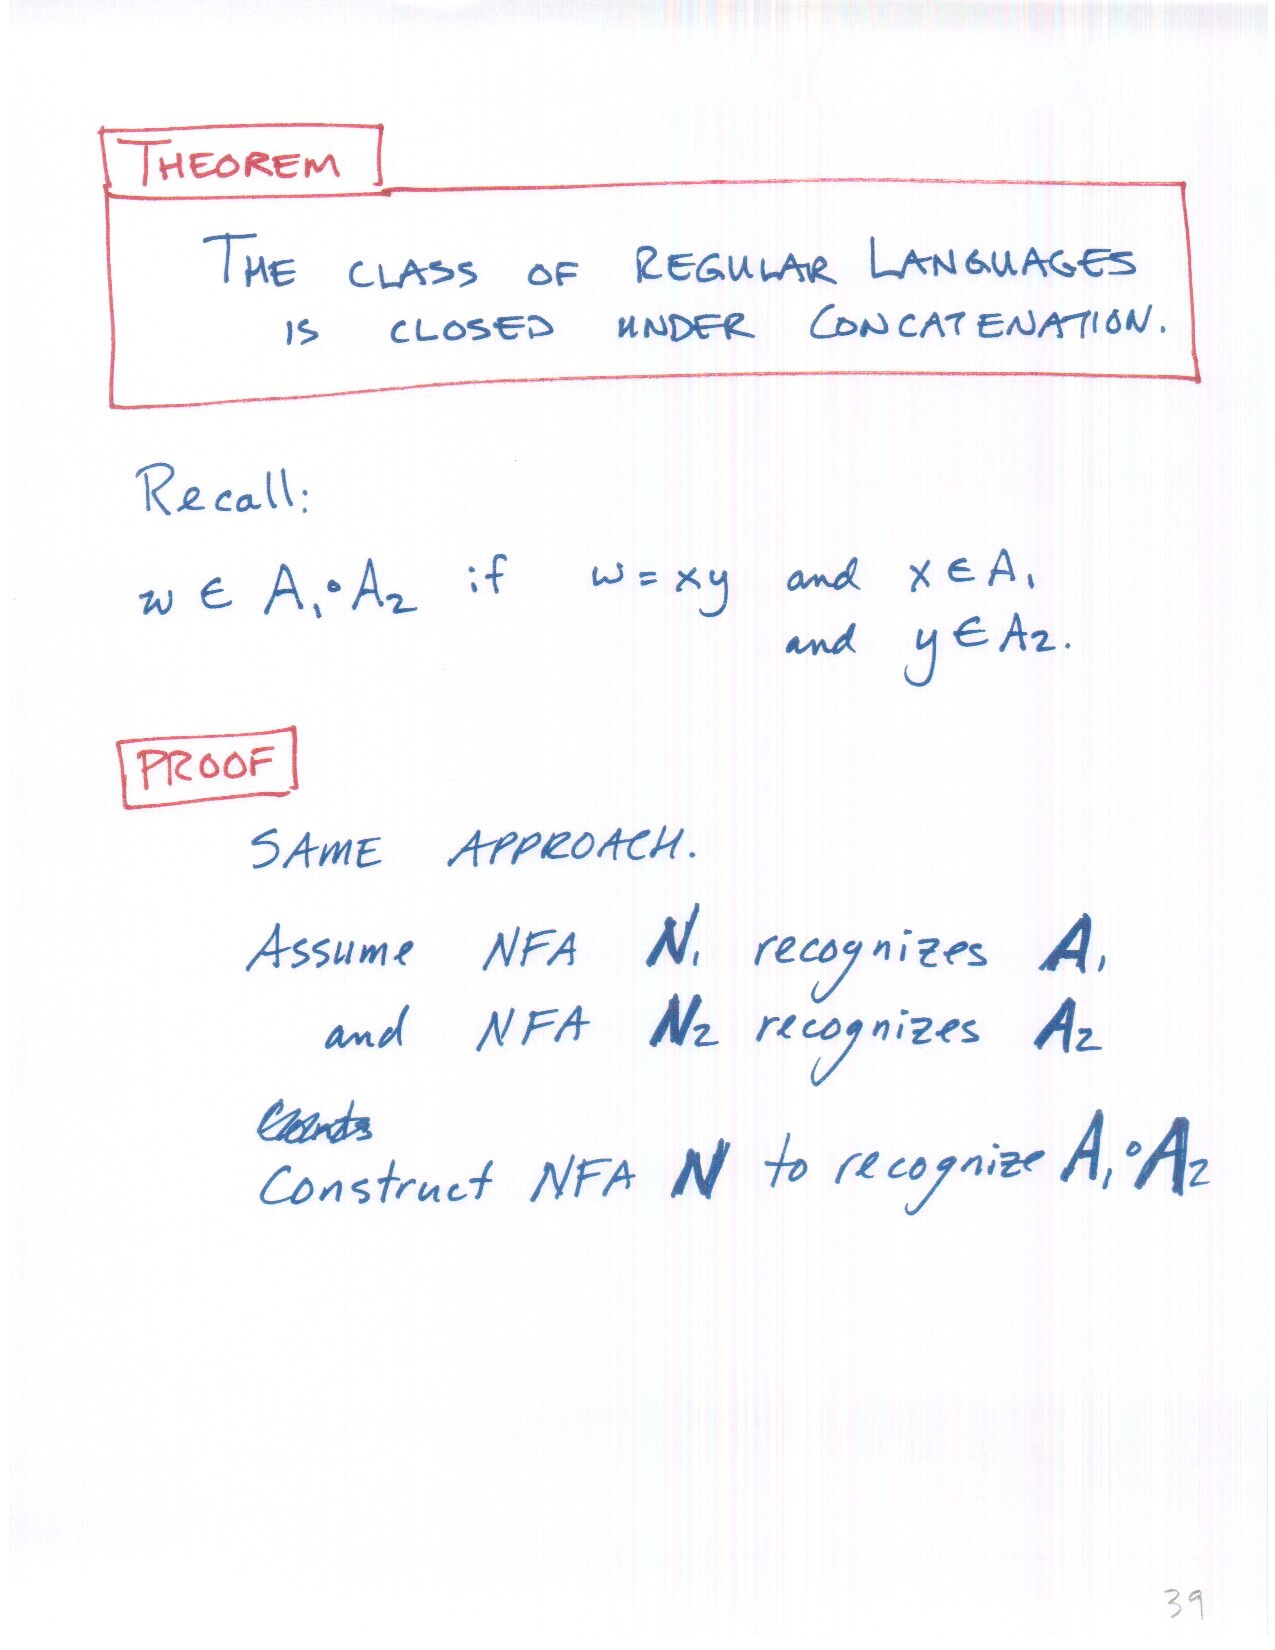 THEOREM
THE CLASS OF REGULAR LANGUAGES
IS CLOSED UNDER CONCATENATION.
Recall:
w ∈ A₁∘A₂ if w = xy and x ∈ A₁
and y ∈ A₂.
PROOF
SAME APPROACH.
Assume NFA N₁ recognizes A₁
and NFA N₂ recognizes A₂
Construct NFA N to recognize A₁∘A₂
39